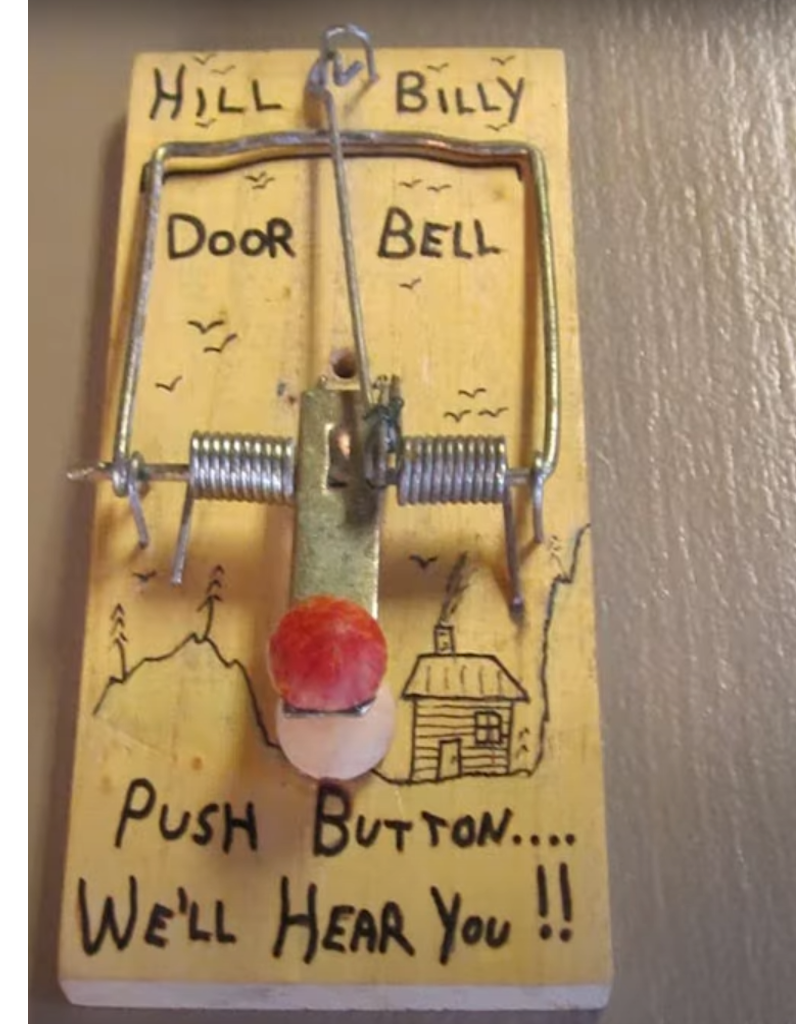 HILL BILLY
DOOR BELL
PUSH BUTTON....
WE'LL HEAR YOU !!